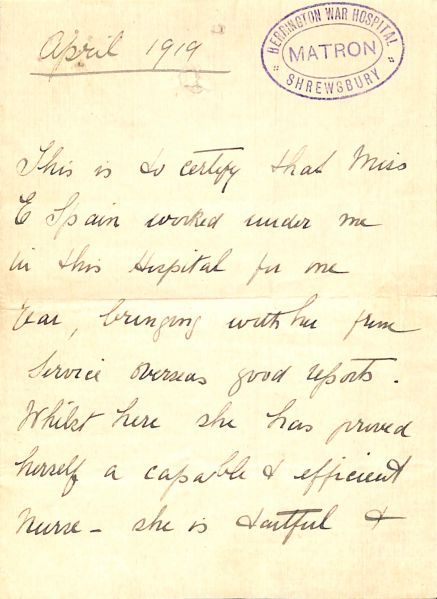 April 1919
BERRINGTON WAR HOSPITAL
MATRON
SHREWSBURY
This is to certify that Miss
E Spain worked under me
in this Hospital for one
Year, bringing with her from
Service overseas good reports.
Whilst here she has proved
herself a capable & efficient
Nurse – she is tactful &